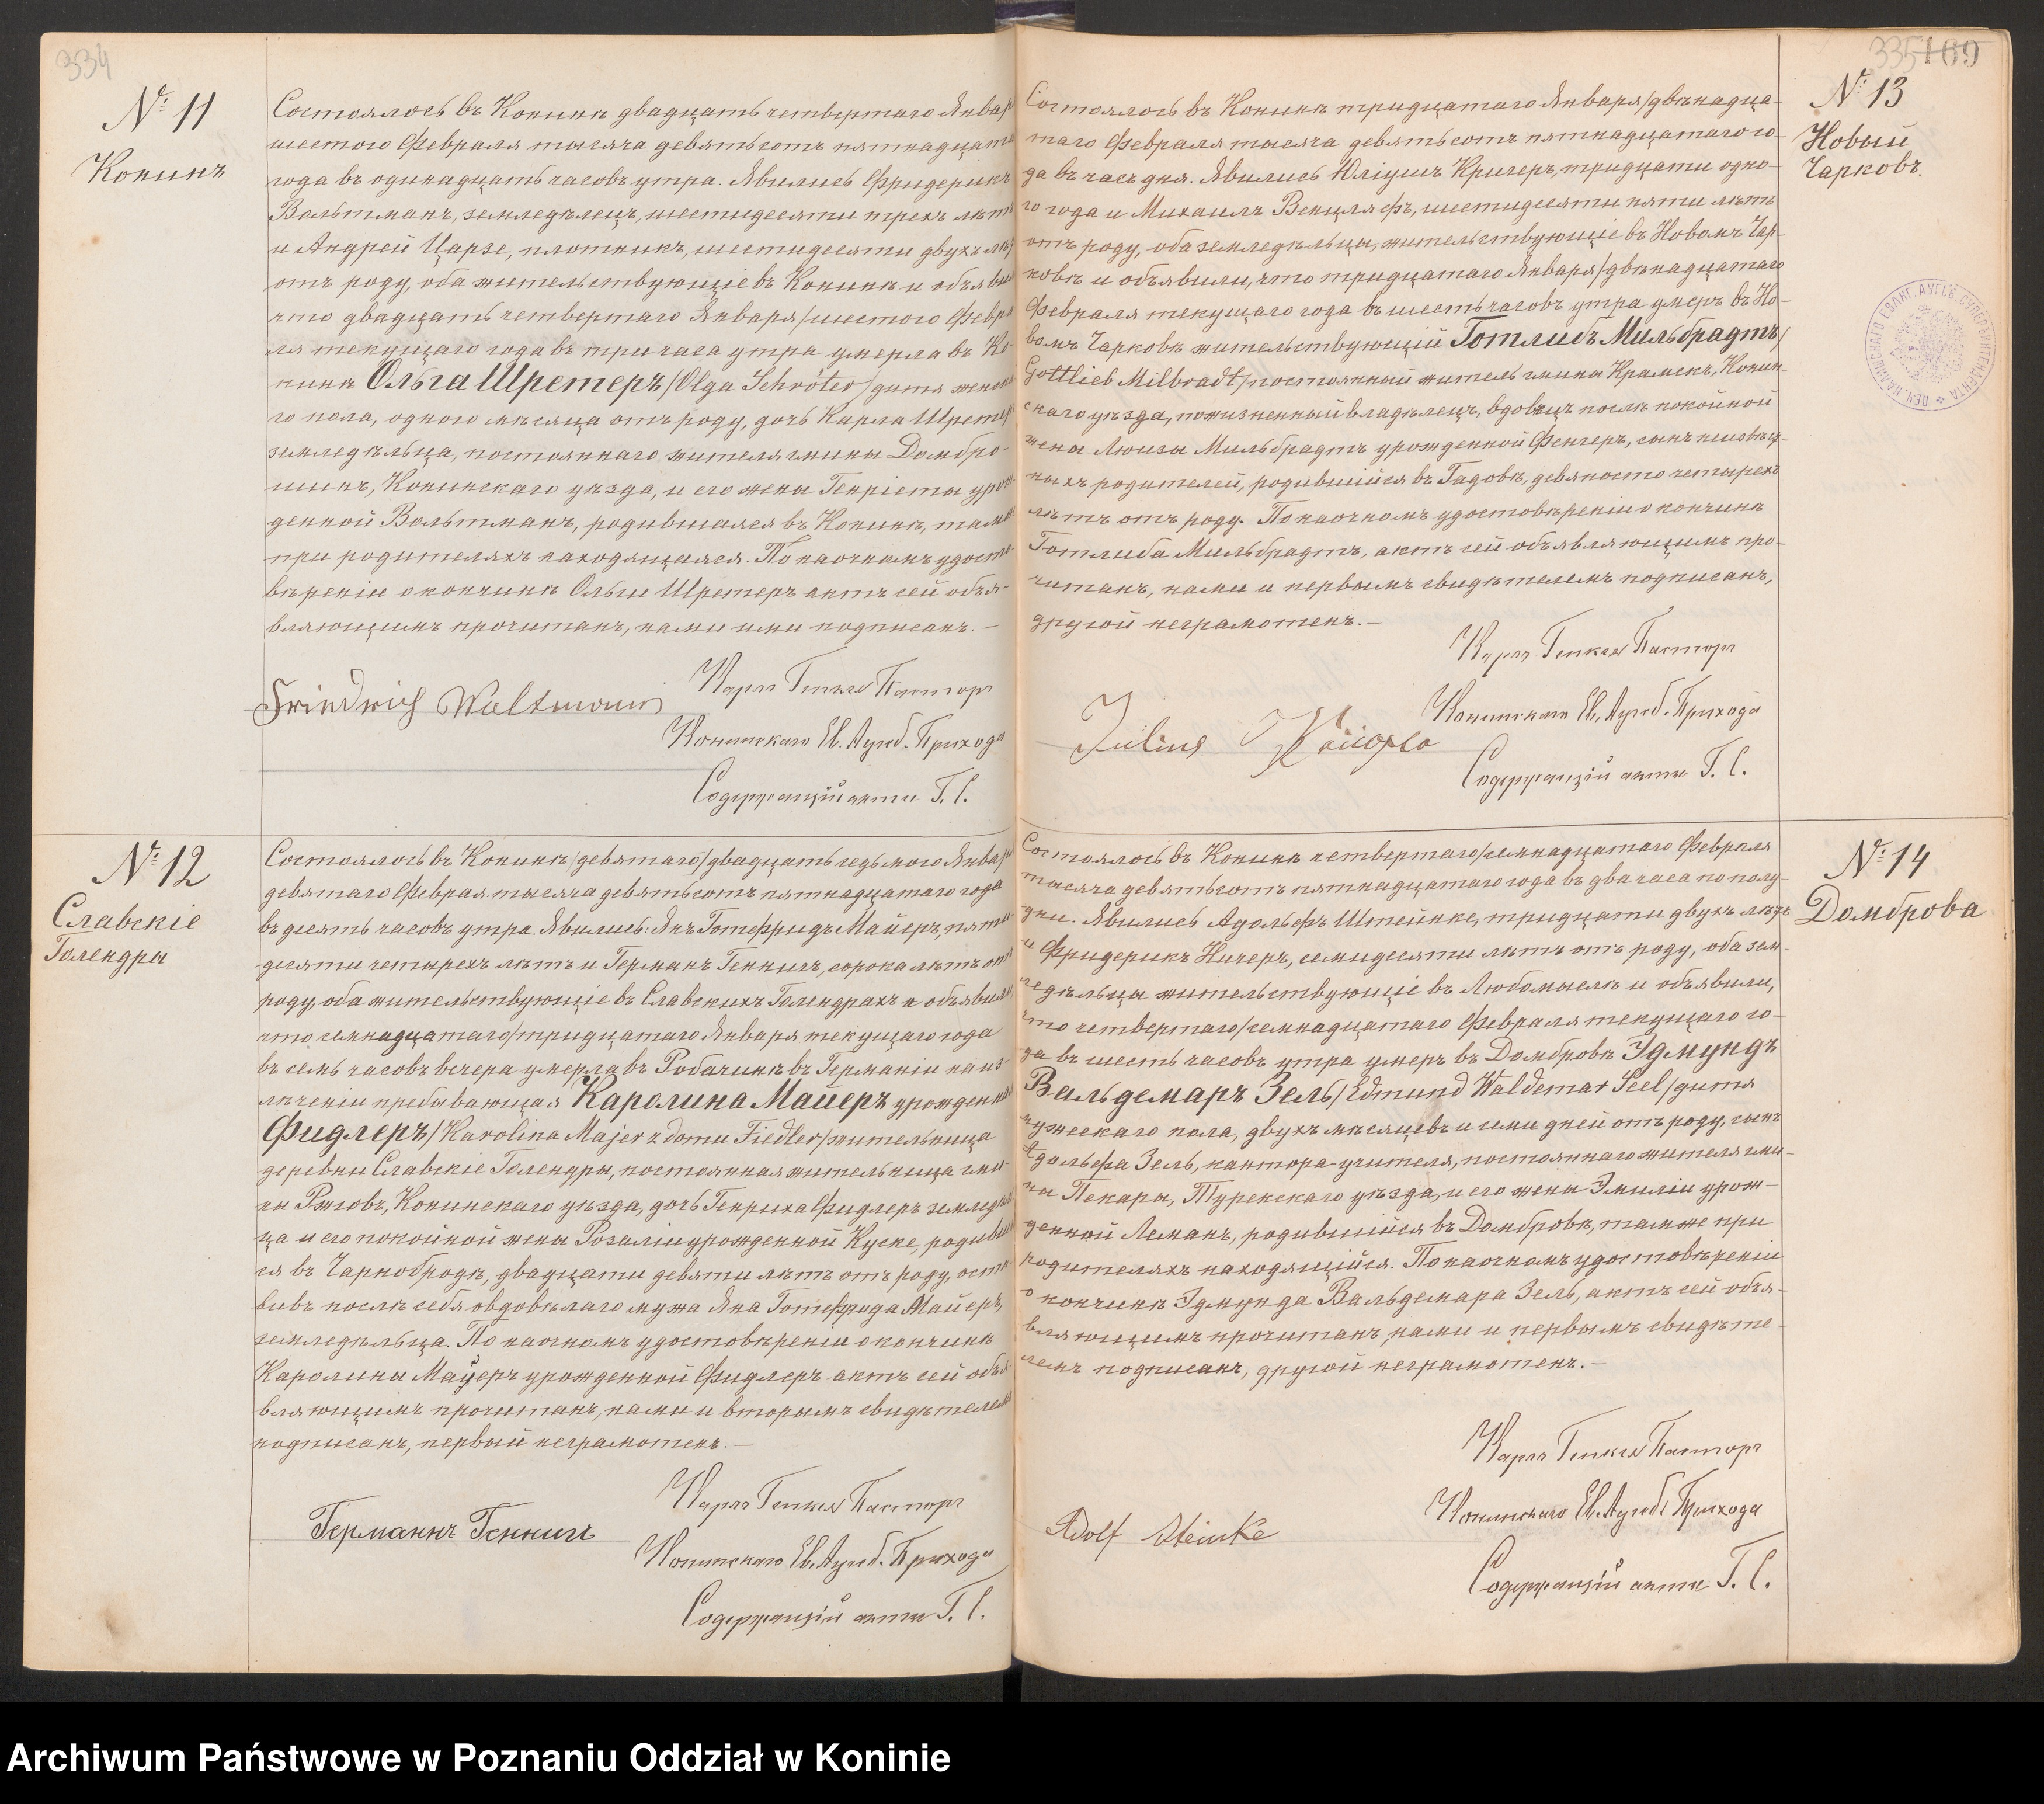 334
№ 11
Конинъ
Состоялось въ Конинѣ двадцать четвертаго Январ
шестого Февраля тысяча девятьсотъ пятнадцата
года въ одинадцать часовъ утра. Явились Фридерикъ
Вольтманъ, земледѣлецъ, шестидесяти трехъ лѣтъ
и Андрей Царзе, плотникъ, шестидесяти двухъ лѣ
отъ роду, оба жительствующіе въ Конинѣ и объяви
что двадцать четвертаго Января/шестого Февра
ля текущаго года въ три часа утра умерла въ Ко
нинѣ Ольга Шретеръ/Olga Schröter/дитя женска
го пола, одного мѣсяца отъ роду, дочь Карла Шретер
земледѣльца, постояннаго жителя гмины Домбро-
шинъ, Конинскаго уѣзда, и его жены Генріеты урож
денной Вольтманъ, родившаяся въ Конинѣ, тамъ
при родителяхъ находящаяся. По наочномъ удосто-
вѣреніи о кончинѣ Ольги Шретеръ актъ сей объя-
вляющимъ прочитанъ, нами и ми подписанъ. —
Friedrich Woltmann
Карлъ Генкель Пасторъ
Конинскаго Ев. Аугсб. Прихода
Содержащій акты Г. С.
№ 12
Славскіе
Голендры
Состоялось въ Конинѣ/девятаго/двадцать седьмого Январ
девятаго Февраля тысяча девятьсотъ пятнадцатаго года
въ десять часовъ утра. Явились: Янъ Готфридъ Майеръ, пяти-
десяти четырехъ лѣтъ и Германъ Геннигъ, сорока лѣтъ отъ
роду, оба жительствующіе въ Славскихъ Голендрахъ и объявили,
что семнадцатаго/тридцатаго Января текущаго года
въ семь часовъ вечера умерла въ Робачинѣ въ Германіи на из-
лѣченіи пребывающая Каролина Майеръ урожденная
Фидлеръ/Karolina Majer z domu Fiedler/жительница
деревни Славскіе Голендры, постоянная жительница гми-
ны Ржговъ, Конинскаго уѣзда, дочь Генриха Фидлеръ земледѣль
ца и его покойной жены Розаліи урожденной Куске, родивша
ся въ Чарнобродѣ, двадцати девяти лѣтъ отъ роду, оста-
вивъ послѣ себя овдовѣлаго мужа Яна Готфрида Майеръ,
земледѣльца. По наочномъ удостовѣреніи о кончинѣ
Каролины Майеръ урожденной Фидлеръ актъ сей объя-
вляющимъ прочитанъ, нами и вторымъ свидѣтелемъ
подписанъ, первый неграмотенъ. —
Германнъ Геннигъ
Карлъ Генкель Пасторъ
Конинскаго Ев. Аугсб. Прихода
Содержащій акты Г. С.
335 109
№ 13
Новый
Чарковъ.
Состоялось въ Конинѣ тридцатаго Января/двѣнадца-
таго Февраля тысяча девятьсотъ пятнадцатаго го-
да въ часъ дня. Явились Юліушъ Кригеръ, тридцати одно-
го года и Михаилъ Венцляфъ, шестидесяти пяти лѣтъ
отъ роду, оба земледѣльцы, жительствующіе въ Новомъ Чар-
ковѣ и объявили, что тридцатаго Января/двѣнадцатаго
Февраля текущаго года въ шесть часовъ утра умеръ въ Но-
вомъ Чарковѣ жительствующій Готлибъ Мильбрадтъ/
Gottlieb Milbradt/постоянный житель гмины Крамскъ, Конин-
скаго уѣзда, пожизненный владѣлецъ, вдовецъ послѣ покойной
жены Люизы Мильбрадтъ урожденной Фенгеръ, сынъ неизвѣст-
ныхъ родителей, родившійся въ Гадовѣ, девяносто четырехъ
лѣтъ отъ роду. По наочномъ удостовѣреніи о кончинѣ
Готлиба Мильбрадтъ, актъ сей объявляющимъ про-
читанъ, нами и первымъ свидѣтелемъ подписанъ,
другой неграмотенъ. —
Карлъ Генкель Пасторъ
Конинскаго Ев. Аугсб. Прихода
Julius
Содержащій акты Г. С.
№ 14
Домброва
Состоялось въ Конинѣ четвертаго/семнадцатаго Февраля
тысяча девятьсотъ пятнадцатаго года въ два часа по полу-
дни. Явились Адольфъ Штейнке, тридцати двухъ лѣтъ
и Фридерикъ Ничеръ, семидесяти лѣтъ отъ роду, оба зем-
ледѣльцы жительствующіе въ Любомыслѣ и объявили,
что четвертаго/семнадцатаго Февраля текущаго го-
да въ шесть часовъ утра умеръ въ Домбровѣ Эдмундъ
Вальдемаръ Зель/Edmund Waldemar Seel/дитя
мужескаго пола, двухъ мѣсяцевъ и семи дней отъ роду, сынъ
Адольфа Зель, кантора-учителя, постояннаго жителя гми-
ны Пекары, Турекскаго уѣзда, и его жены Эмиліи урож-
денной Леманъ, родившійся въ Домбровѣ, тамже при
родителяхъ находящійся. По наочномъ удостовѣреніи
о кончинѣ Эдмунда Вальдемара Зель, актъ сей объя-
вляющимъ прочитанъ, нами и первымъ свидѣте-
лемъ подписанъ, другой неграмотенъ. —
Карлъ Генкель Пасторъ
Конинскаго Ев. Аугсб. Прихода
Adolf Steinke
Содержащій акты Г. С.
Archiwum Państwowe w Poznaniu Oddział w Koninie